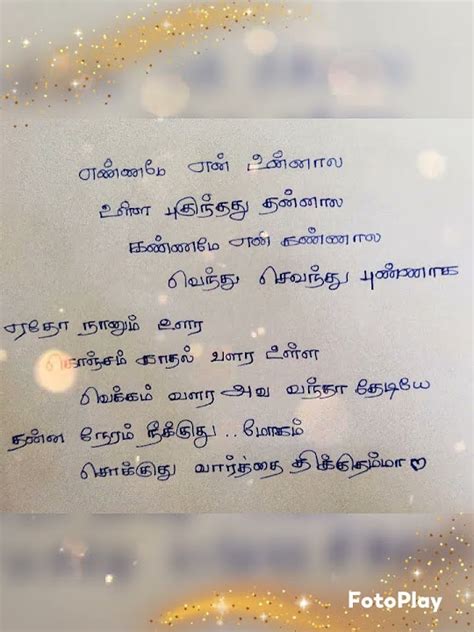 எண்ணமே ஏன் உன்னால
உள்ள புகுந்தது தன்னால
கண்ணமே ஏன் கண்ணால
வெந்து செவந்து புண்ணாக
ஏதோ நானும் உளர
கொஞ்சம் காதல் வளர உள்ள
வெக்கம் வளர அவ வந்தா தேடியே
தன்ன நேரம் நீக்குது .. மோகம்
சொக்குது வார்த்தை திக்குதம்மா♡
FotoPlay